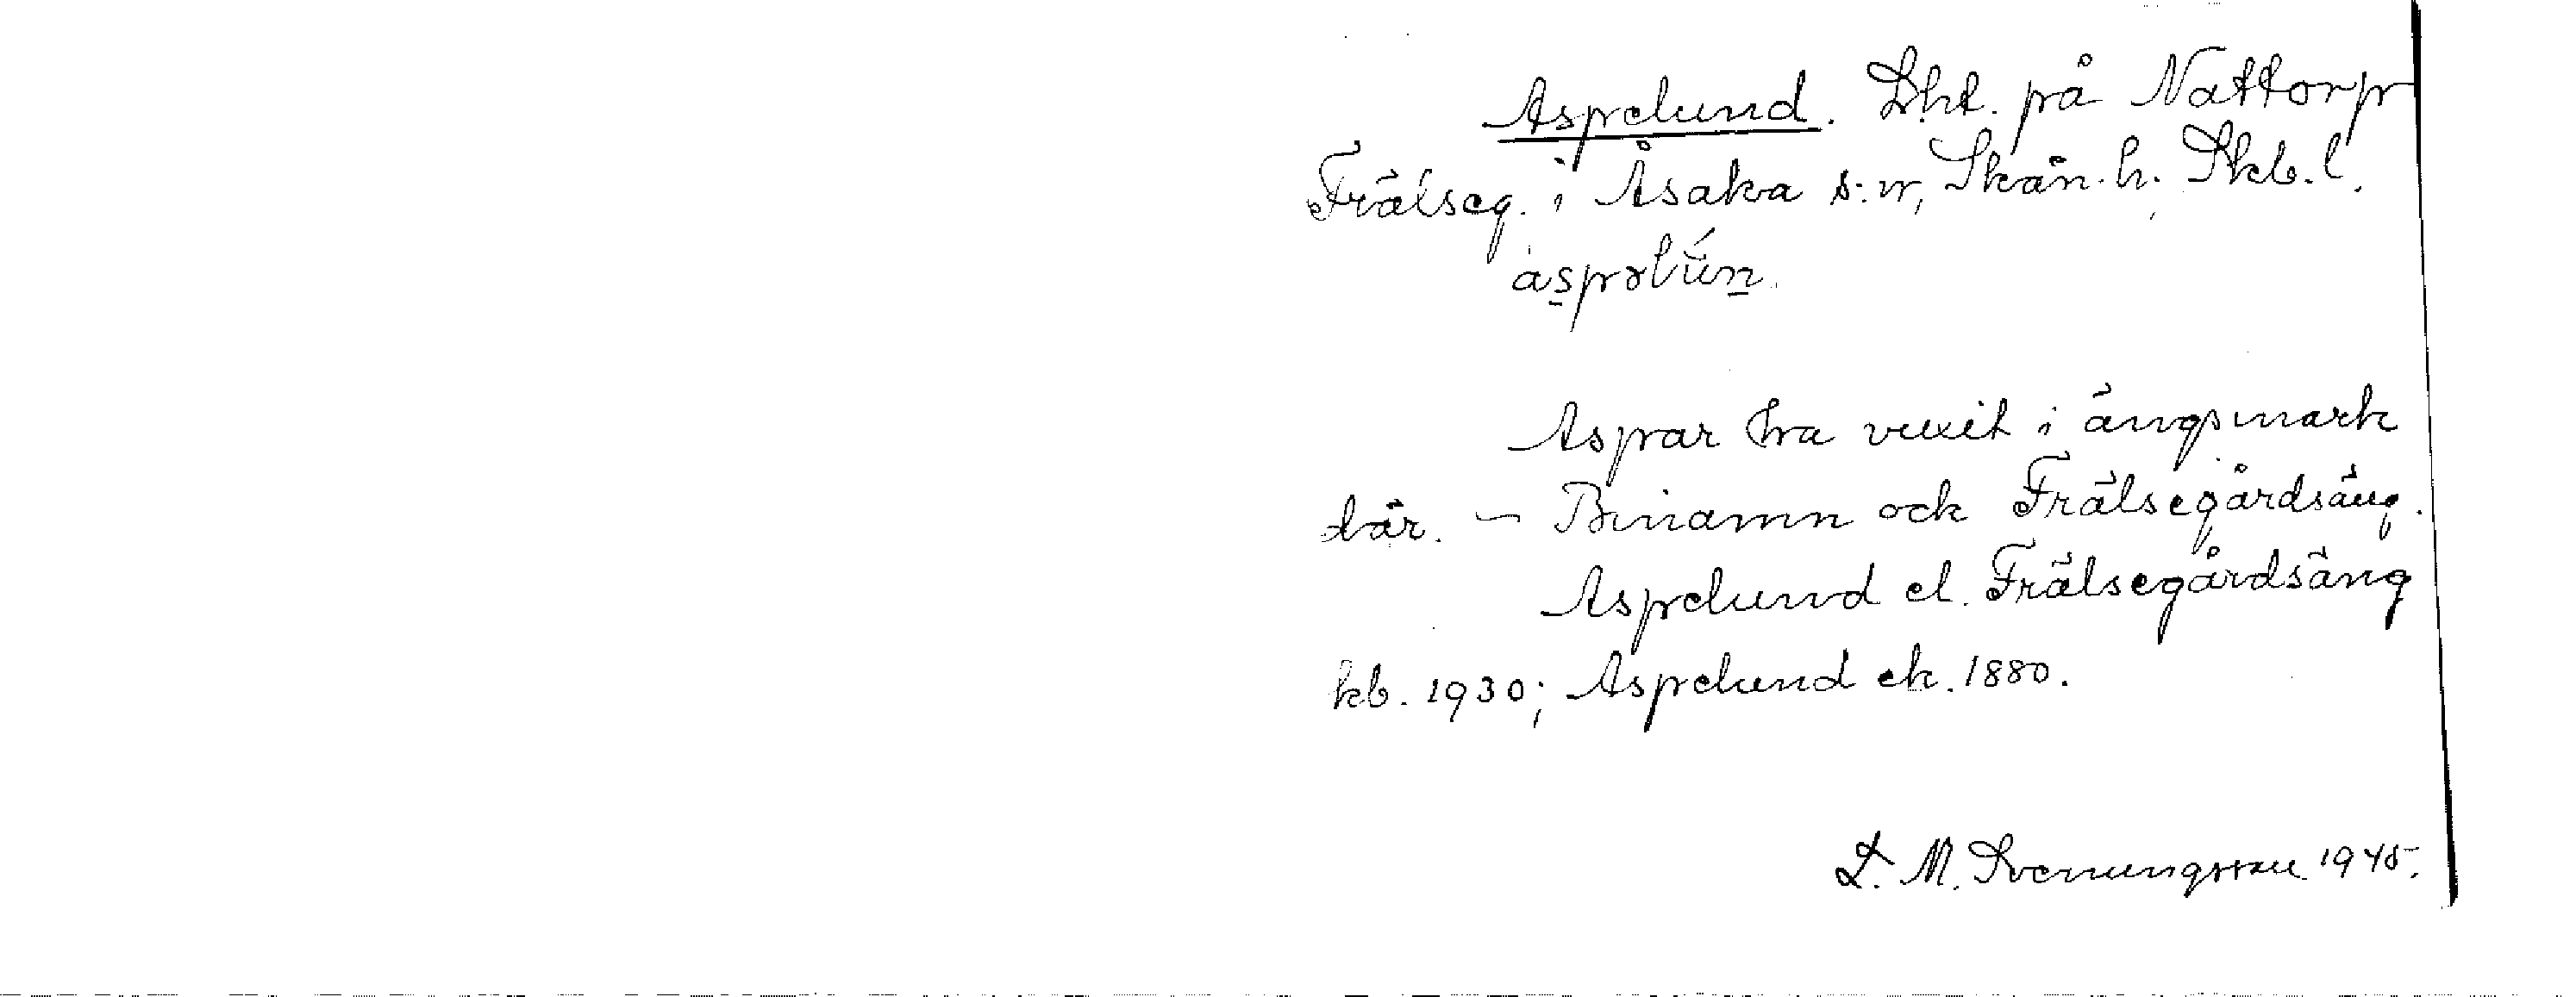 Aspelund. Lht. på Nattorp
Frälseg. i Åsaka s:n, Skån. h. Skb. l.
aspəlún.
Aspar ha vuxit i ängsmark
där. – Binamn ock Frälsegårdsäng.
Aspelund el. Frälsegårdsäng
kb. 1930; Aspelund ek. 1880.
L. M. Svenungsson 1945.